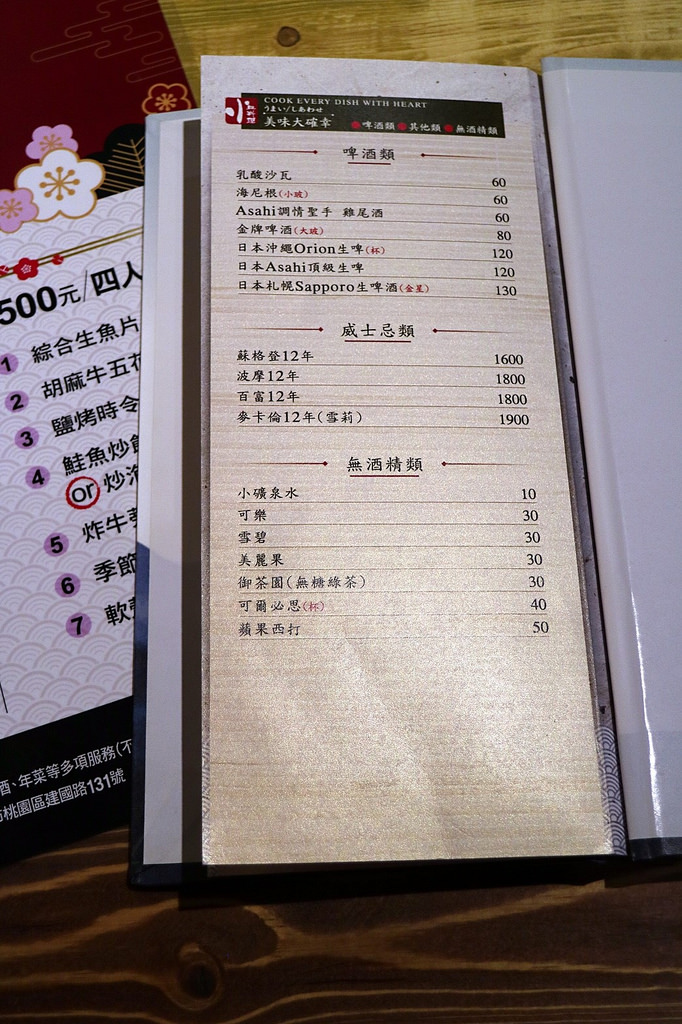 COOK EVERY DISH WITH HEART
うまい/しあわせ
美味大確幸 啤酒類 其他類 無酒精類
啤酒類
乳酸沙瓦 60
海尼根(小玻) 60
Asahi調情聖手 雞尾酒 60
金牌啤酒(大玻) 80
日本沖繩Orion生啤(杯) 120
日本Asahi頂級生啤 120
日本札幌Sapporo生啤酒(金星) 130
威士忌類
蘇格登12年 1600
波摩12年 1800
百富12年 1800
麥卡倫12年(雪莉) 1900
無酒精類
小礦泉水 10
可樂 30
雪碧 30
美麗果 30
御茶園(無糖綠茶) 30
可爾必思(杯) 40
蘋果西打 50
500元/四人
1 綜合生魚片
2 胡麻牛五花
3 鹽烤時令
4 鮭魚炒飯
or 炒
5 炸牛
6 季節
7 軟
酒、年菜等多項服務(不
市桃園區建國路131號